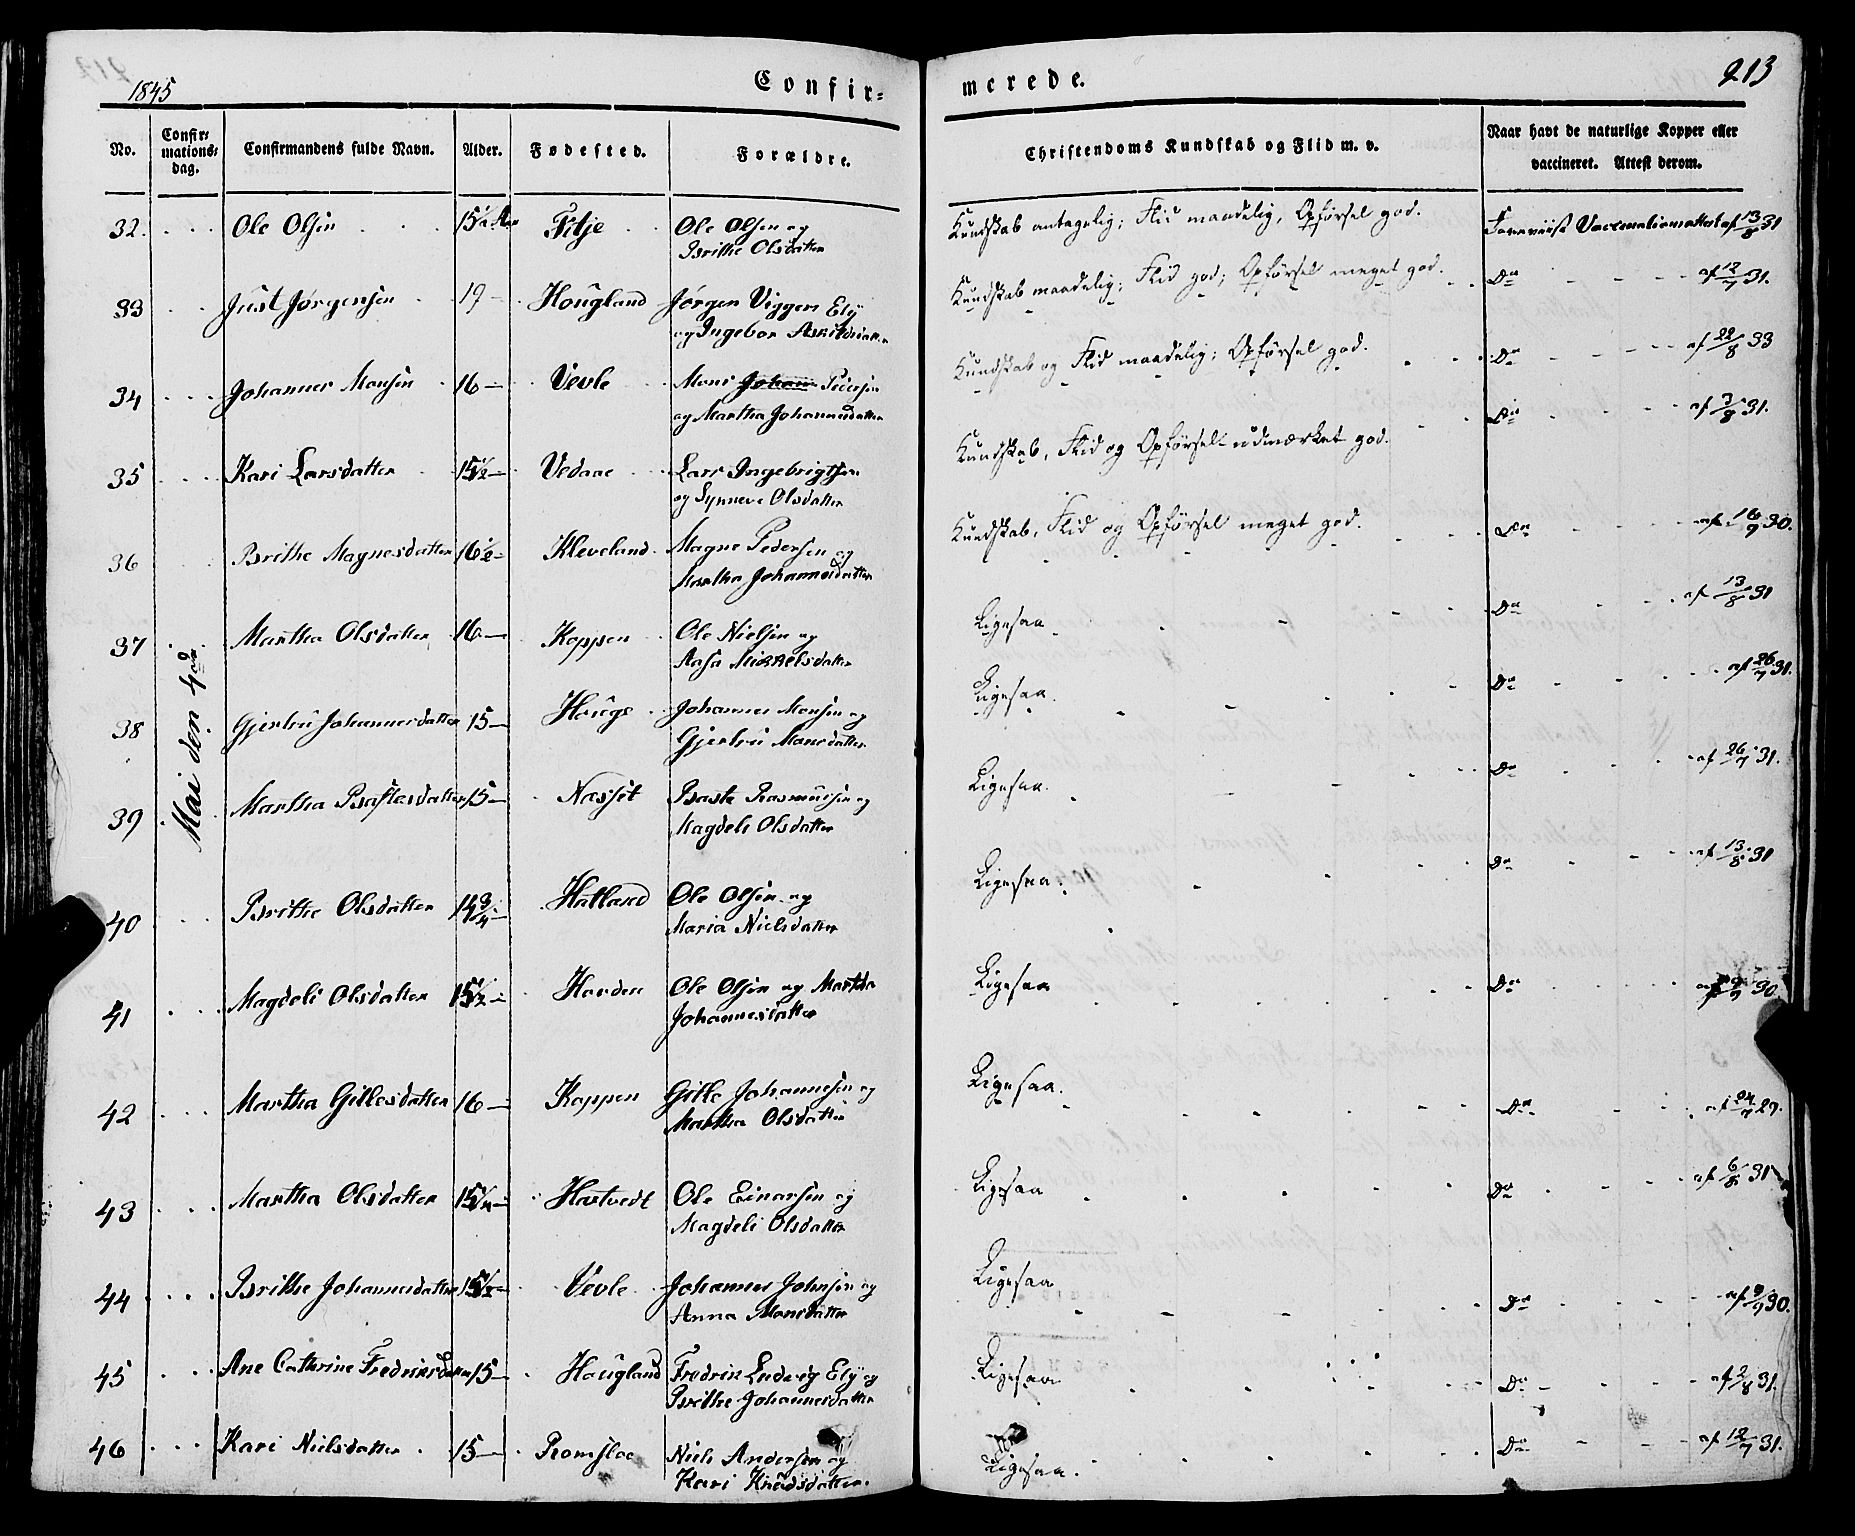 1845
Confir=
merede.
213
No.
Confir=
mations=
dag.
Confirmandens fulde Navn.
Alder.
Fødested.
Forældre.
Christendoms Kundskab og Flid m. v.
Naar havt de naturlige Kopper eller
vaccineret. Attest derom.
Mai den 4de
32. Ole Olsen 15½ Aar Fitje Ole Olsen og
Brithe Olsdatter
Kundskab antagelig; Flid maadelig, Opførsel god. Foreviist Vaccinationsattest af 13/8 31
33 Just Jørgensen 19 Hougland Jørgen Viggers Ely
og Ingebor Askildsdatter
Kundskab maadelig; Flid god; Opførsel meget god. Do af 12/7 31.
34 Johannes Monsen 16 Vevle Mons Johan Pedersen
og Martha Johannesdatter
Kundskab og Flid maadelig; Opførsel god. Do af 22/8 33
35 Kari Larsdatter 15½ Vedaae Lars Ingebrigtsen
og Synneve Olsdatter
Kundskab, Flid og Opførsel udmærket god. Do af 3/8 31.
36 Brithe Magnesdatter 16½ Kleveland Magne Pedersen og
Martha Johannesdatter
Kundskab, Flid og Opførsel meget god. Do af 16/9 30.
37 Martha Olsdatter 16 Koppen Ole Nielsen og
Aasa Mikkelsdatter
Ligesaa Do af 13/8 31
38 Gjertru Johannesdatter 15 Houge Johannes Monsen og
Gjertru Monsdatter
Ligesaa. Do af 26/7 31.
39 Martha Bastesdatter 15 Nasset Baste Rasmussen og
Magdeli Olsdatter
Ligesaa. Do af 26/7 31.
40 Brithe Olsdatter 14¾ Hatland Ole Olsen og
Maria Nielsdatter
Ligesaa. Do af 13/8 31
41 Magdeli Olsdatter 15½ Havden Ole Olsen og Martha
Johannesdatter
Ligesaa Do 30
42 Martha Gillesdatter 16 Koppen Gille Johannesen og
Martha Olsdatter
Ligesaa. Do af 24/7 29.
43 Martha Olsdatter 15¼ Hartvedt Ole Einarsen og
Magdeli Olsdatter
Ligesaa Do af 6/8 31
44 Brithe Johannesdatter 15½ Vevle Johannes Johnsen og
Anna Monsdatter
Ligesaa Do af 9/9 30.
45 Ane Cathrine Fredriksdatter 15 Haugland Fredrik Ludvig Ely og
Brithe Johannesdatter
Ligesaa Do af 2/8 31.
46 Kari Nielsdatter 15 Romsloe Niels Andersen og
Kari Knudsdatter.
Ligesaa. Do af 12/7 31.